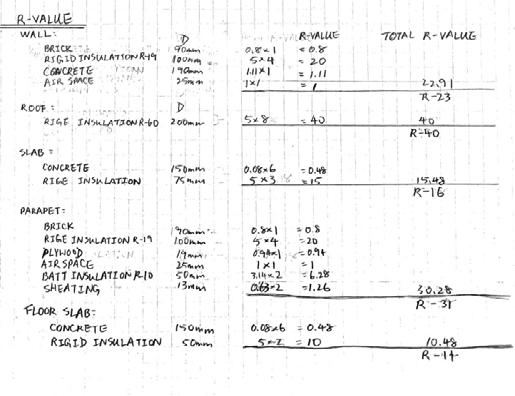 R-VALUE
WALL: D R-VALUE TOTAL R-VALUE
BRICK 90mm 0.8×1 = 0.8
RIGID INSULATION R-19 100mm 5×4 = 20
CONCRETE 190mm 1.11×1 = 1.11
AIR SPACE 25mm 1×1 = 1 22.91
R-23
ROOF: D
RIGE INSULATION R-60 200mm 5×8 = 40 40
R-40
SLAB:
CONCRETE 150mm 0.08×6 = 0.48
RIGE INSULATION 75mm 5×3 = 15 15.48
R-16
PARAPET:
BRICK 90mm 0.8×1 = 0.8
RIGE INSULATION R-19 100mm 5×4 = 20
PLYWOOD 19mm 0.94×1 = 0.94
AIRSPACE 25mm 1×1 = 1
BATT INSULATION R-10 50mm 3.14×2 = 6.28
SHEATING 13mm 0.63×2 = 1.26 30.28
R-31
FLOOR SLAB:
CONCRETE 150mm 0.08×6 = 0.48
RIGID INSULATION 50mm 5×2 = 10 10.48
R-11